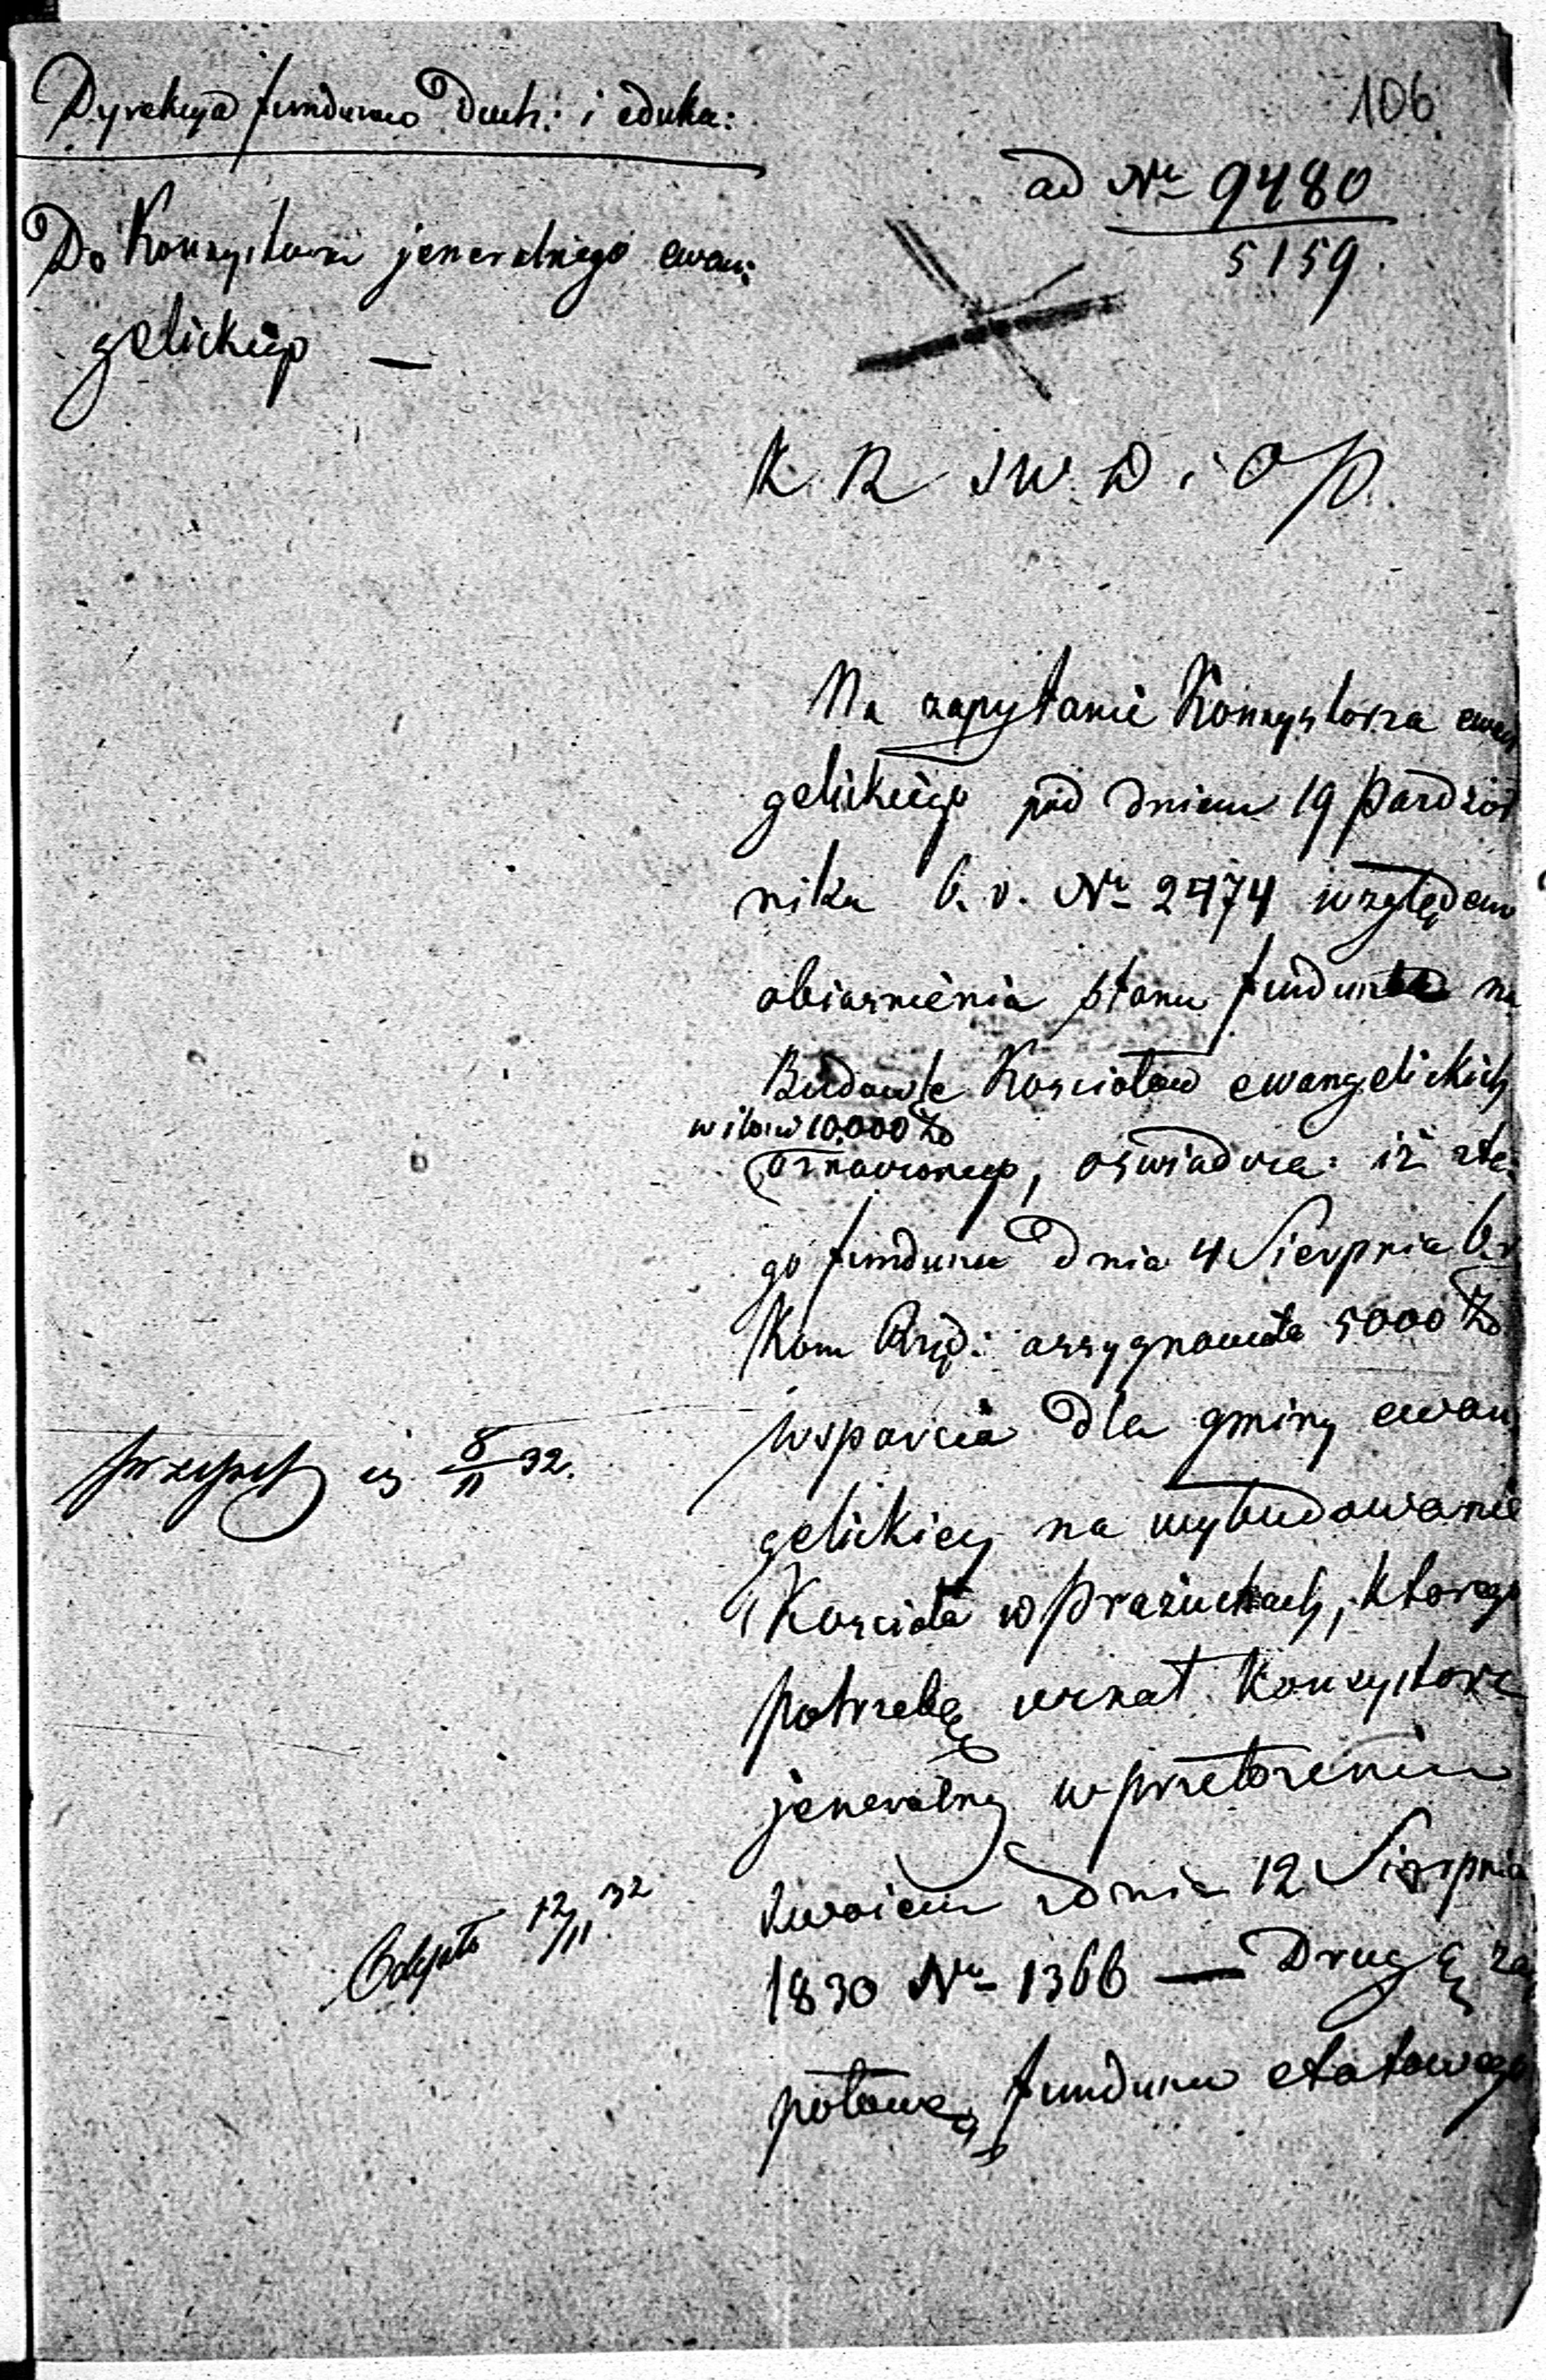 106
Dyrekcya funduszo Duch: i eduka:
ad Nr 9480
5159.
Do Konsystorza jeneralnego ewan:
gelickiego —
K. R S W. D i O P.
Na zapytanie Konsystorza ewan
gelickiego pod dniem 19 Paździer
nika b. r. Nr 2474 względem
obiaśnienia stanu funduszu na
Budowle Kościołów ewangelickich
w ilości 10,000 Zł
oznaczonego, oświadcza: iż zte:
go funduszu dnia 4 Sierpnia b. r
Kom Rząd: assygnowała 5000 Zł
wsparcia dla gminy ewan
gelickiey na wybudowanie
Kościoła w Prażuchach, którego
potrzebę uznał Konsystorz
jeneralny w przełożeniu
swoiem z dnia 12 Sierpnia
1830 Nr 1366 — Drugą zaś
połowę funduszu etatowego
przepis 8/11 32.
Odeszło 12/11 32